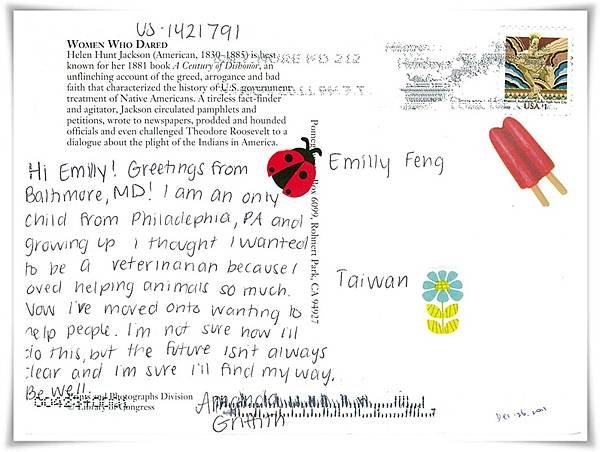 US-1421791
WOMEN WHO DARED
Helen Hunt Jackson (American, 1830–1885) is best
known for her 1881 book A Century of Dishonor, an
unflinching account of the greed, arrogance and bad
faith that characterized the history of U.S. government
treatment of Native Americans. A tireless fact-finder
and agitator, Jackson circulated pamphlets and
petitions, wrote to newspapers, prodded and hounded
officials and even challenged Theodore Roosevelt to a
dialogue about the plight of the Indians in America.
Hi Emilly! Greetings from
Baltimore, MD! I am an only
child from Philadelphia, PA and
growing up I thought I wanted
to be a veterinarian because I
oved helping animals so much.
Now I've moved onto wanting to
help people. I'm not sure how I'll
do this, but the future isn't always
clear and I'm sure I'll find my way.
Be well.
Prints and Photographs Division
Library of Congress
Amanda
Griffith
Box 6099, Rohnert Park, CA 94927
MD 212
USA
Emilly Feng
Taiwan
Dec. 26.